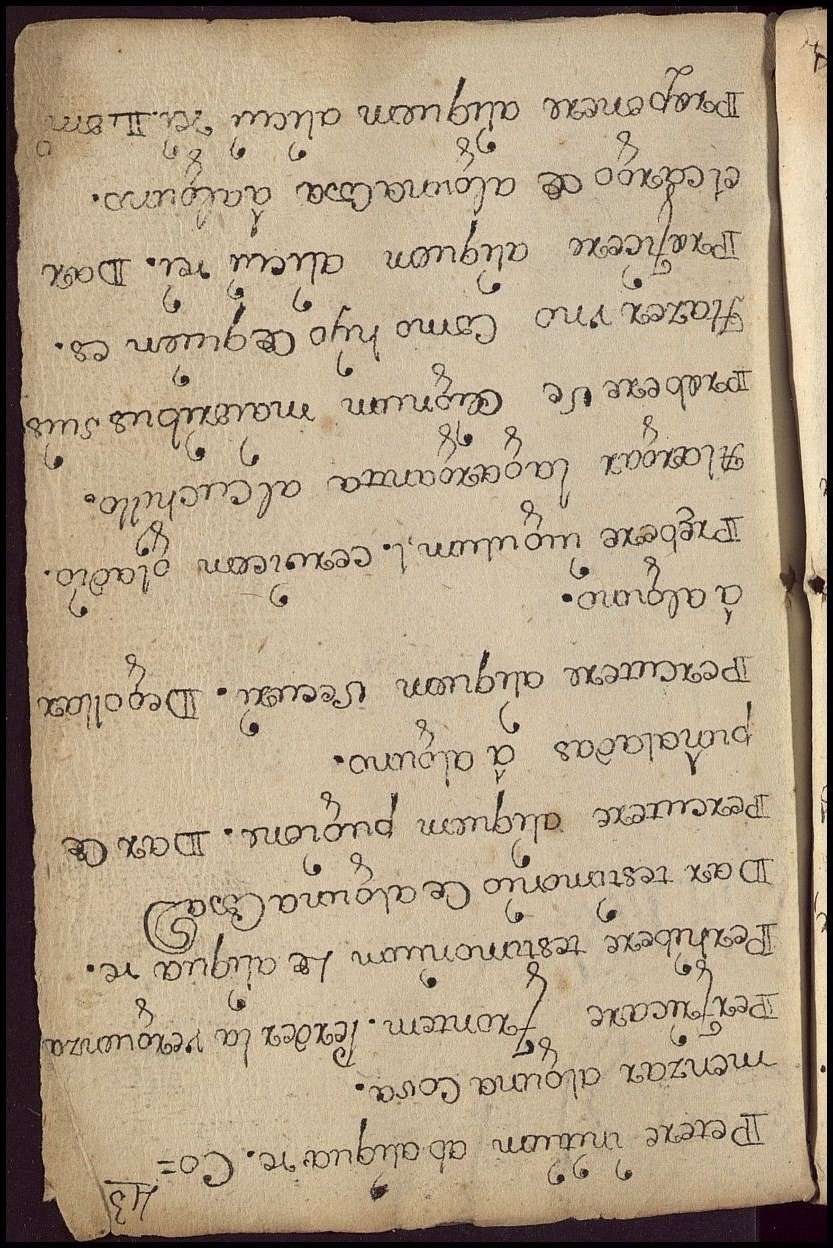 43
Petere initium ab aliqua re. Co=
menzar alguna Cosa.
Perfricare frontem. Perder la verguenza
Perhibere testimonium de aliqua re.
Dar testimonio de alguna Cosa
Percutere aliquem pugione. Dar de
puñaladas á alguno.
Percutere aliquem securi. Degollar
á alguno.
Præbere iugulum, l. cervicem gladio.
Alargar la garganta al cuchillo.
Præbere se dignum maioribus suis
Hazer vno como hijo de quien es.
Præficere aliquem alicui rei. Dar
el cargo de alguna Cosa á alguno.
Præponere aliquem alicui rei. Idem